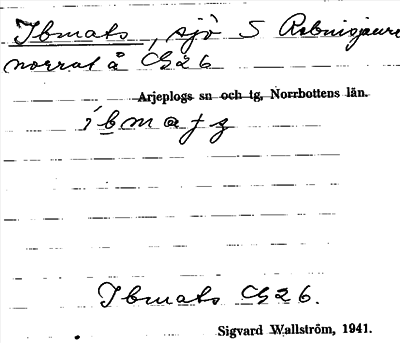 Ibmats, sjö S Rebnisjaure
norrat å C526
Arjeplogs sn och tg, Norrbottens län.
Ibmats C526.
Sigvard Wallström, 1941.